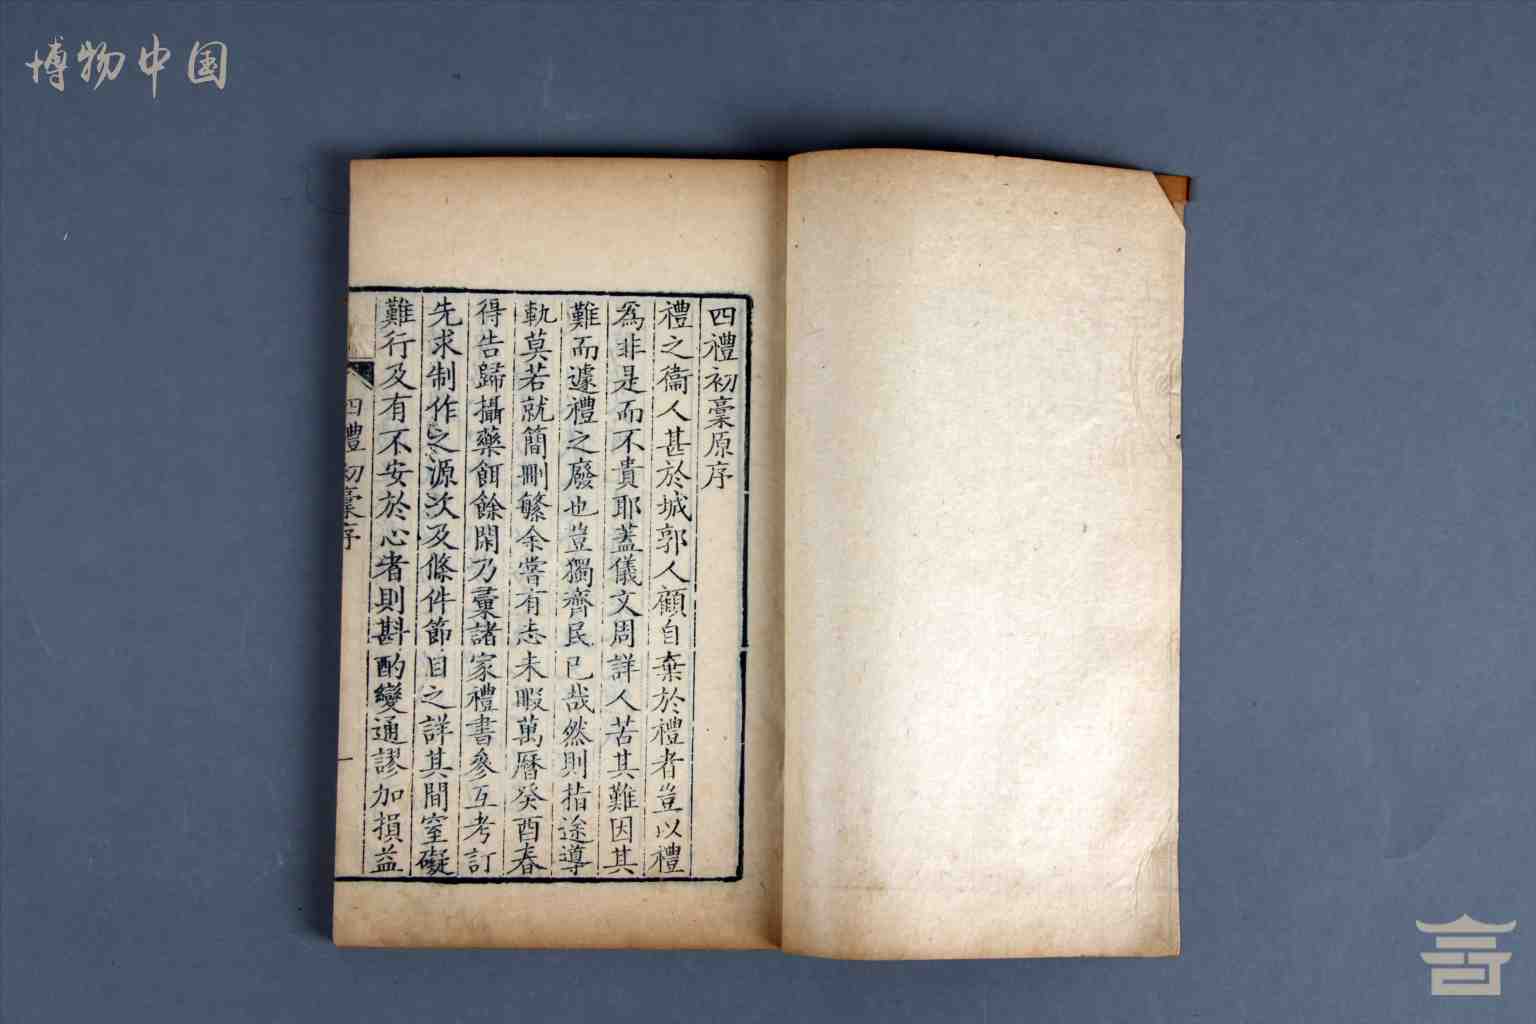 博物中国
四禮初稾原序
禮之衞人甚於城郭人顧自棄於禮者豈以禮
為非是而不貴耶蓋儀文周詳人苦其難因其
難而遽禮之廢也豈獨齊民已哉然則指途導
軌莫若就簡刪繁余嘗有志未暇萬曆癸酉春
得告歸攝藥餌餘閑乃彙諸家禮書參互考訂
先求制作之源次及條件節目之詳其間窒礙
難行及有不安於心者則斟酌變通謬加損益
四禮初稾序
一